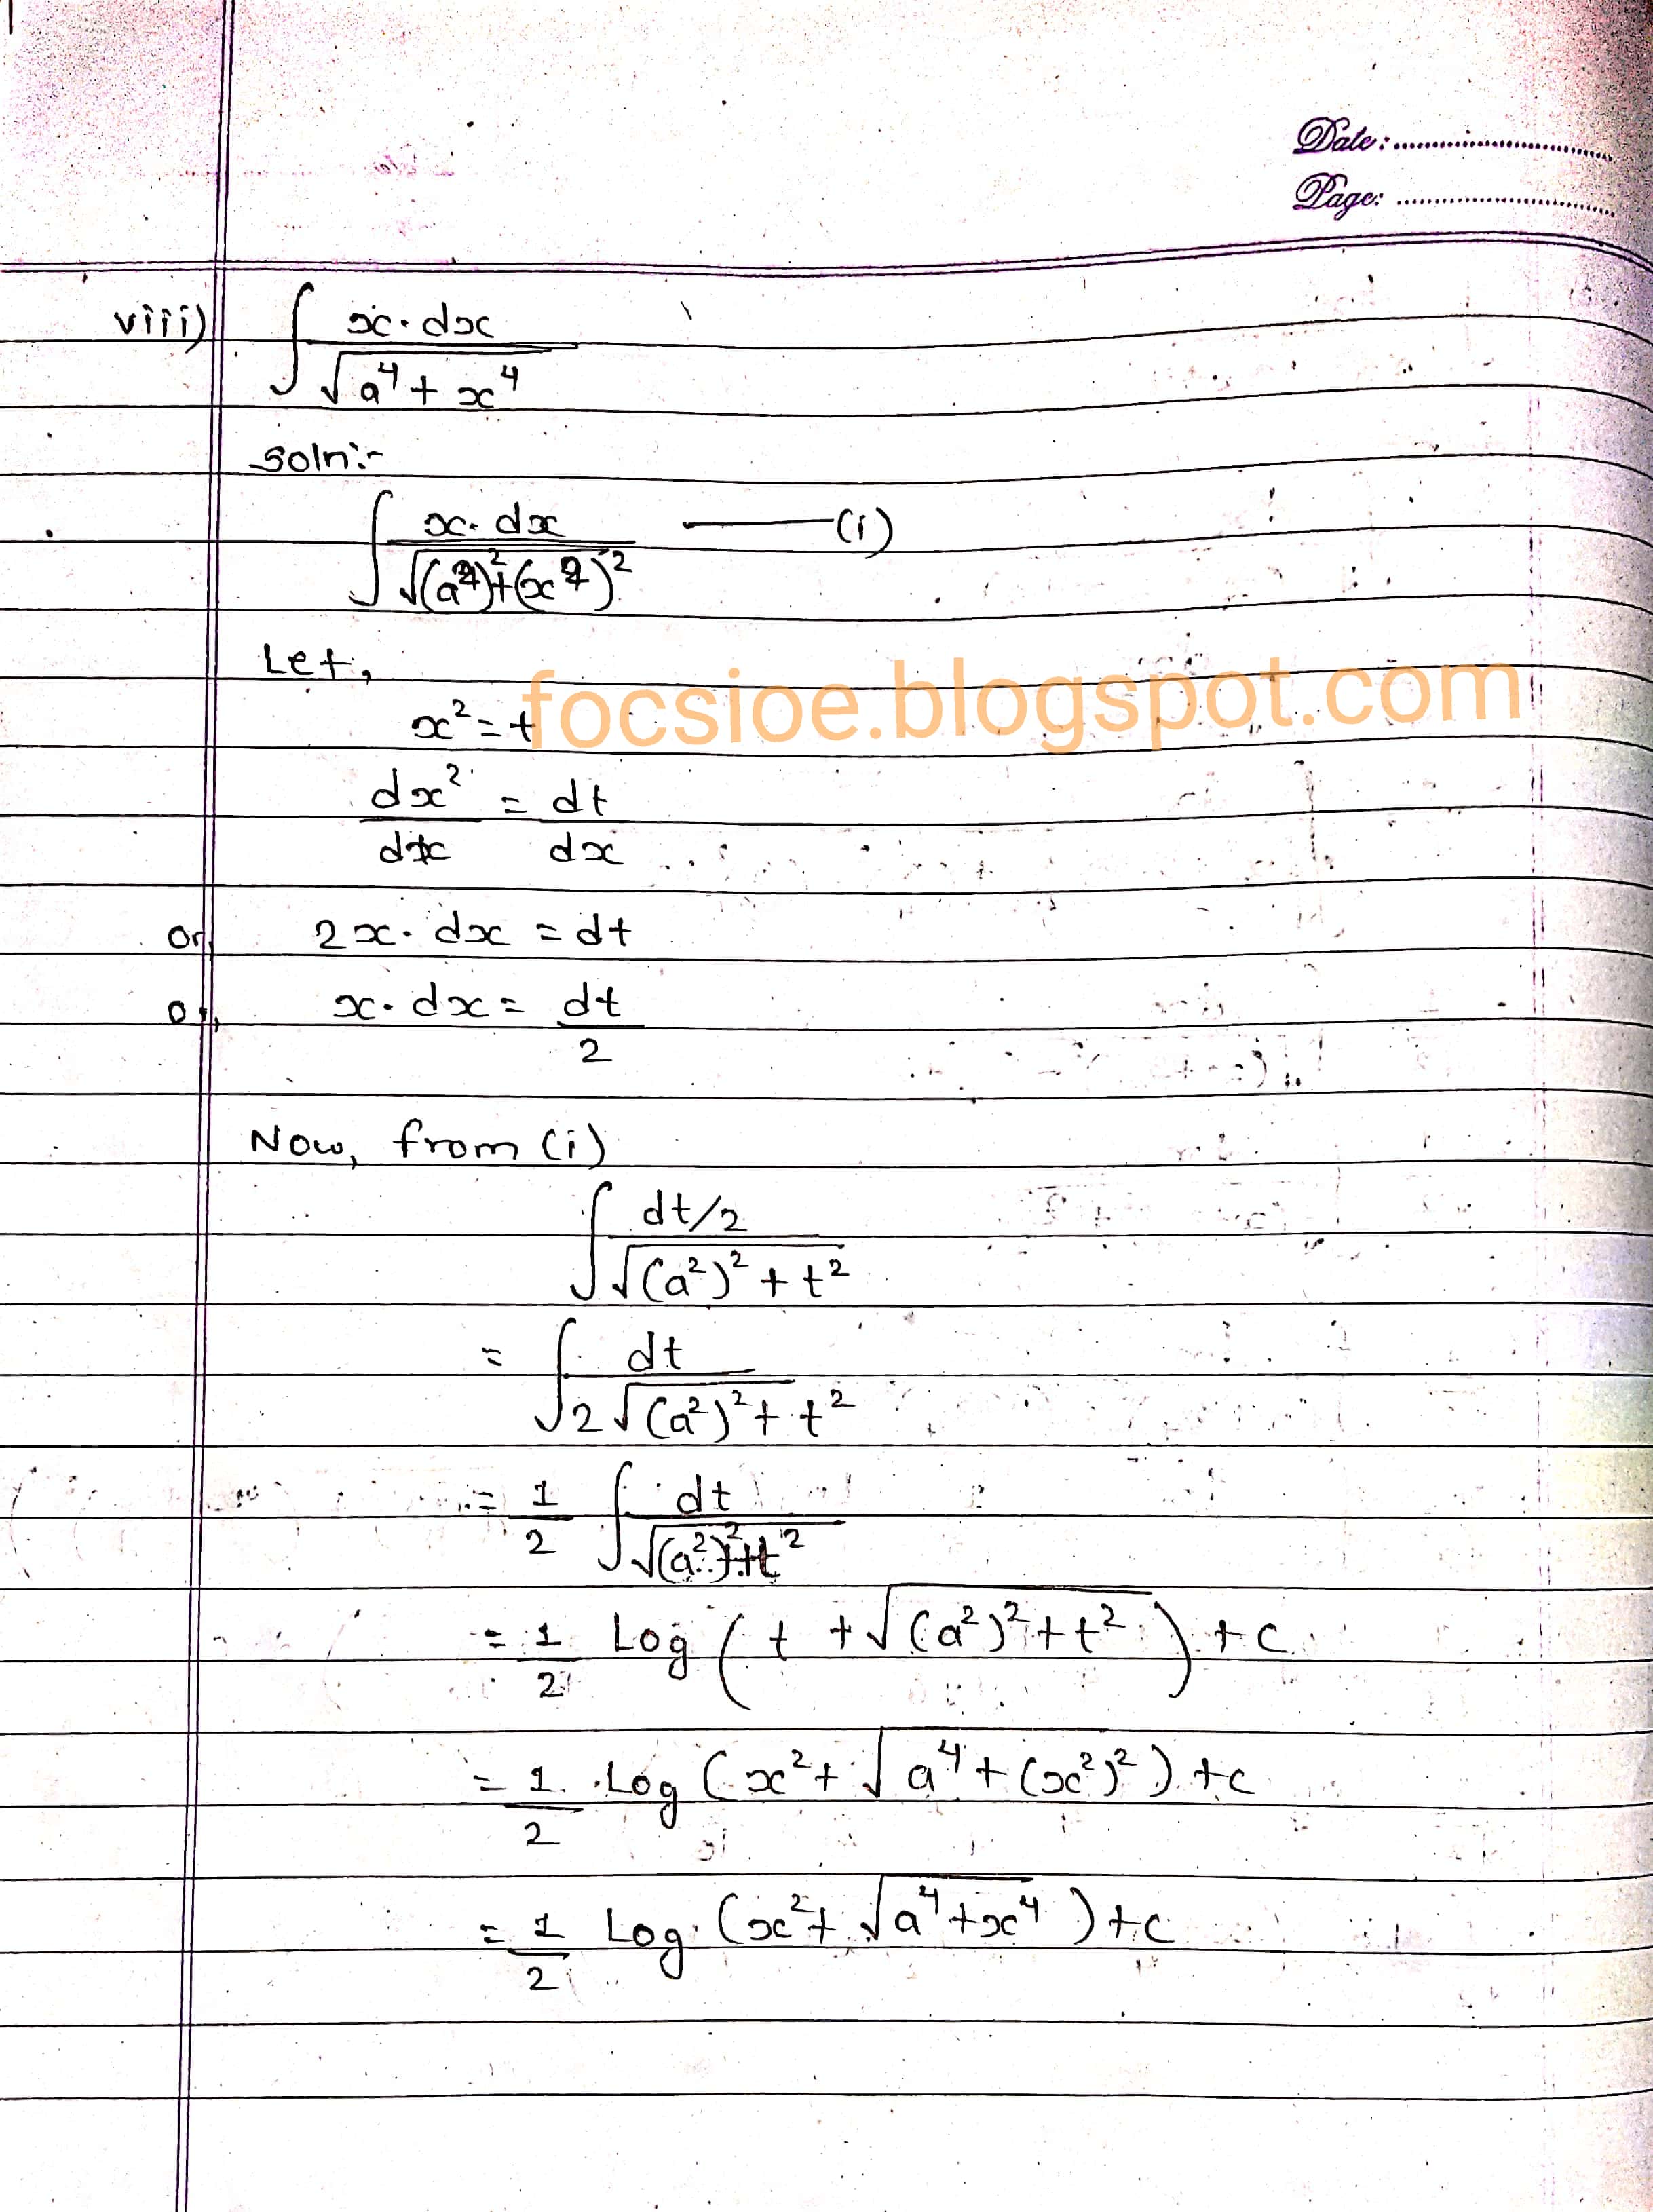 Date: ........................
Page: ........................
viii) ∫ x·dx / √(a⁴ + x⁴)
Soln:-
∫ x·dx / √((a²)² + (x²)²) ——— (i)
Let,
x² = t
focsioe.blogspot.com
dx²/dx = dt/dx
or, 2x·dx = dt
or, x·dx = dt/2
Now, from (i)
∫ dt/2 / √((a²)² + t²)
= ∫ dt / 2√((a²)² + t²)
= 1/2 ∫ dt / √((a²)² + t²)
= 1/2 Log (t + √((a²)² + t²)) + c
= 1/2 Log (x² + √(a⁴ + (x²)²)) + c
= 1/2 Log (x² + √(a⁴ + x⁴)) + c